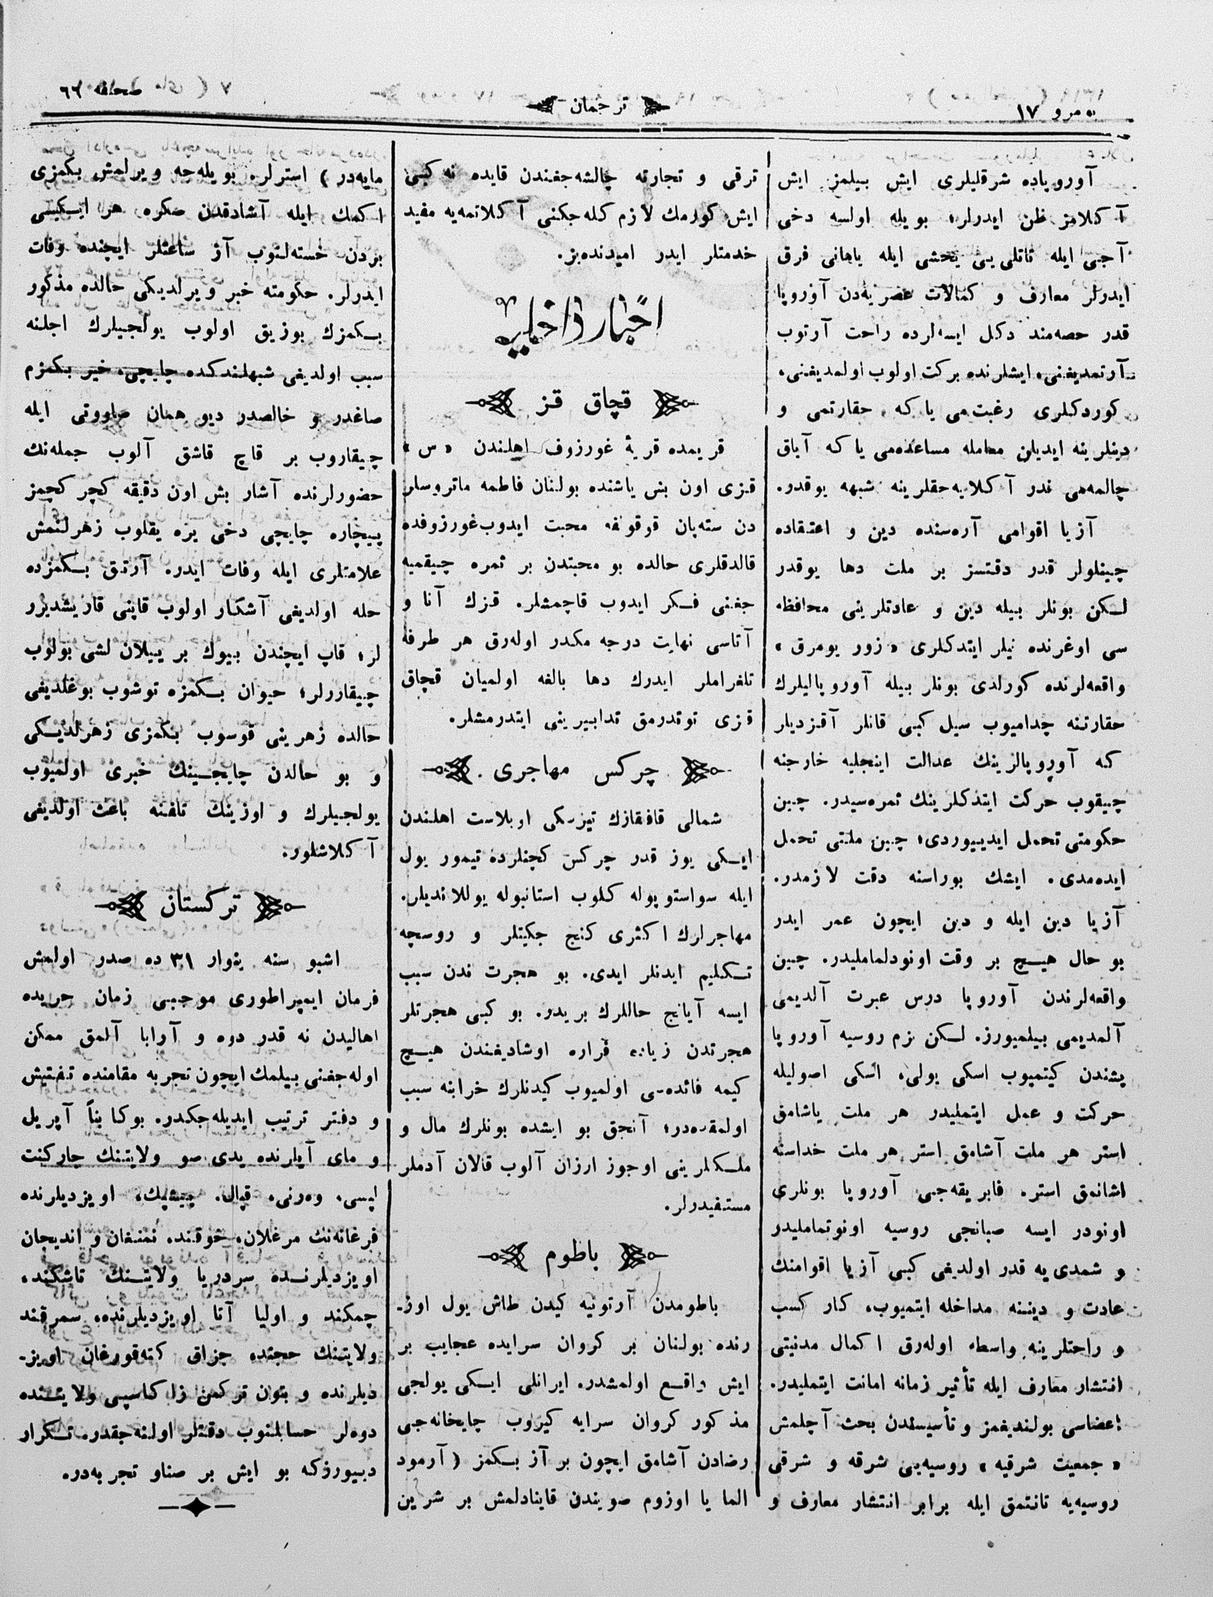 نومرو ١٧
ترجمان
صحافه ٦٦
آوروپاده شرقلیلری ایش بیلمز ایش
آكلامز ظن ایدرلر؛ بویله اولسه دخی
آجی ایله تاتلی‌یی یخشی ایله یاهانی فرق
ایدرلر معارف و كمالات عصریه‌دن آوروپا
قدر حصه‌مند دكل ایسه‌لرده راحت آرتوب
آرتمدیغنی، ایشلرنده بركت اولوب اولمدیغنی،
كوردكلری رغبت‌می یا كه حقارتمی و
دینلرینه ایدیلن معامله مساعده‌می یا كه آیاق
چالمه‌می ندر آكلایه‌جقلرینه شبهه یوقدر.
آزیا اقوامی آره‌سنده دین و اعتقاده
چینلولر قدر دقتسز بر ملت دها یوقدر
لكن بونلر بیله دین و عادتلرینی محافظه
سی اوغرنده نیلر ایتدكلری «زور یومرق»
واقعه‌لرنده كورلدی بونلر بیله آوروپالیلرك
حقارتنه چدامیوب سیل كبی قانلر آقزدیلر
كه آوروپالرینك عدالت اینجلیه خارجنه
چیقوب حركت ایتدكلرینك ثمره‌سیدر. چین
حكومتی تحمل ایدییوردی؛ چین ملتی تحمل
ایده‌مدی. ایشك بوراسنه دقت لازمدر.
آزیا دین ایله و دین ایچون عمر ایدر
بو حال هیچ بر وقت اونودلماملیدر. چین
واقعه‌لرندن آوروپا درس عبرت آلدیمی
آلمدیمی بیلمیورز. لكن بزم روسیه آوروپا
پشندن كیتمیوب اسكی یولی، اسكی اصولیله
حركت و عمل ایتملیدر هر ملت یاشامق
استر هر ملت آشامق استر هر ملت خداسنه
اشانمق استر. فابریقه‌جی آوروپا بونلری
اونودر ایسه صبانجی روسیه اونوتماملیدر
و شمدی‌یه قدر اولدیغی كبی آزیا اقوامنك
عادت و دیننه مداخله ایتمیوب، كار كسب
و راحتلرینه واسطه اوله‌رق اكمال مدنیتی
انتشار معارف ایله تأثیر زمانه امانت ایتملیدر.
اعضاسی بولندیغمز و تأسیسندن بحث آچلمش
«جمعیت شرقیه» روسیه‌یی شرقه و شرقی
روسیه‌یه تانتمق ایله برابر انتشار معارف و
ترقی و تجارته چالشه‌جغندن قایده نه كبی
ایش كورمك لازم كله‌جكنی آكلاتمه‌یه مفید
خدمتلر ایدر امیدنده‌یز.
اخبار داخلیه
قچاق قز
قریمده قریۀ غورزوف اهلندن «س»
قزی اون بش یاشنده بولنان فاطمه ماتروسلر
دن سته‌پان قوقونه محبت ایدوب غورزوفده
قالدقلری حالده بو محبتدن بر ثمره چیقمیه
جغنی فكر ایدوب قاچمشلر. قزك آنا و
آتاسی نهایت درجه مكدر اوله‌رق هر طرفه
تلغراملر ایدرك دها بالغه اولمیان قچاق
قزی توتدرمق تدابیرینی ایتدرمشلر.
چركس مهاجری
شمالی قافقازك تیرسكی اوبلاست اهلندن
ایكی یوز قدر چركس كچنلرده تیمور یول
ایله سواستوپوله كلوب استانبوله یوللاندیلر.
مهاجرلرك اكثری كنج جكیتلر و روسچه
تكلیم ایدنلر ایدی. بو هجرت ندن سبب
ایسه آیانج حاللرك بریدر. بو كبی هجرتلر
هجرتدن زیاده فراره اوشادیغندن هیچ
كیمه فائده‌سی اولمیوب كیدنلرك خرابنه سبب
اولمقده‌در؛ آنجق بو ایشده بونلرك مال و
ملكلرینی اوجوز ارزان آلوب قالان آدملر
مستفیدرلر.
باطوم
باطومدن آرتوینه كیدن طاش یول اوز-
رنده بولنان بر كروان سرایده عجایب بر
ایش واقع اولمشدر. ایرانلی ایكی یولجی
مذكور كروان سرایه كیروب چایخانه‌جی
رضادن آشامق ایچون بر آز بكمز (آرمود
الما یا اوزوم صویندن قاینادلمش بر شرین
مایه‌در) استرلر. بویله‌جه ویرلمش بكمزی
اكمك ایله آشادقدن صكره هر ایكیسی
بردن خسته‌لنوب آز ساعتلر ایچنده وفات
ایدرلر. حكومته خبر ویرلدیكی حالده مذكور
بكمزك بوزیق اولوب یولجیلرك اجلنه
سبب اولدیغی شبهلندكده چایچی، خیر بكمزم
صاغدر و خالصدر دیو همان صاووتی ایله
چیقاروب بر قاچ قاشق آلوب جمله‌نك
حضورلرنده آشار بش اون دقیقه كچر كچمز
بیچاره چایچی دخی یره یقلوب زهرلنمش
علامتلری ایله وفات ایدر. آرتق بكمزده
حله اولدیغی آشكار اولوب قاپنی قاریشدیرر
لر؛ قاپ ایچندن بیوك بر ییلان لشی بولوب
چیقاررلر؛ حیوان بكمزه توشوب بوغلدیغی
حالده زهرینی قوسوب بكمزی زهرلدیكی
و بو حالدن چایجینك خبری اولمیوب
یولجیلرك و اوزینك تلفنه باعث اولدیغی
آكلاشلور.
تركستان
اشبو سنه ینوار ٣١ ده صدر اولمش
فرمان ایمپراطوری موجبی زمان حربده
اهالیدن نه قدر دوه و آرابا آلمق ممكن
اوله‌جغنی بیلمك ایچون تجربه مقامنده تفتیش
و دفتر ترتیب ایدیله‌جكدر. بوكا بناً آپریل
و مای آیلرنده یدی صو ولایتنك جاركنت
لپسی، وه‌رنی، قپال، پیشپك، اویزدیلرنده
فرغانه‌نك مرغلان، خوقند، نمنغان و اندیجان
اویزدیلرنده سردریا ولایتنك تاشكند،
چمكند و اولیا آتا اویزدیلرنده، سمرقند
ولایتنك حجند، جزاق كته‌قورغان اویز-
دیلرنده و بتون تركمن زاكاسپی ولایتنده
دوه‌لر حسابلنوب دفتلر اولنه‌جقدر. تكرار
دییورزكه بو ایش بر صناو تجربه‌در.